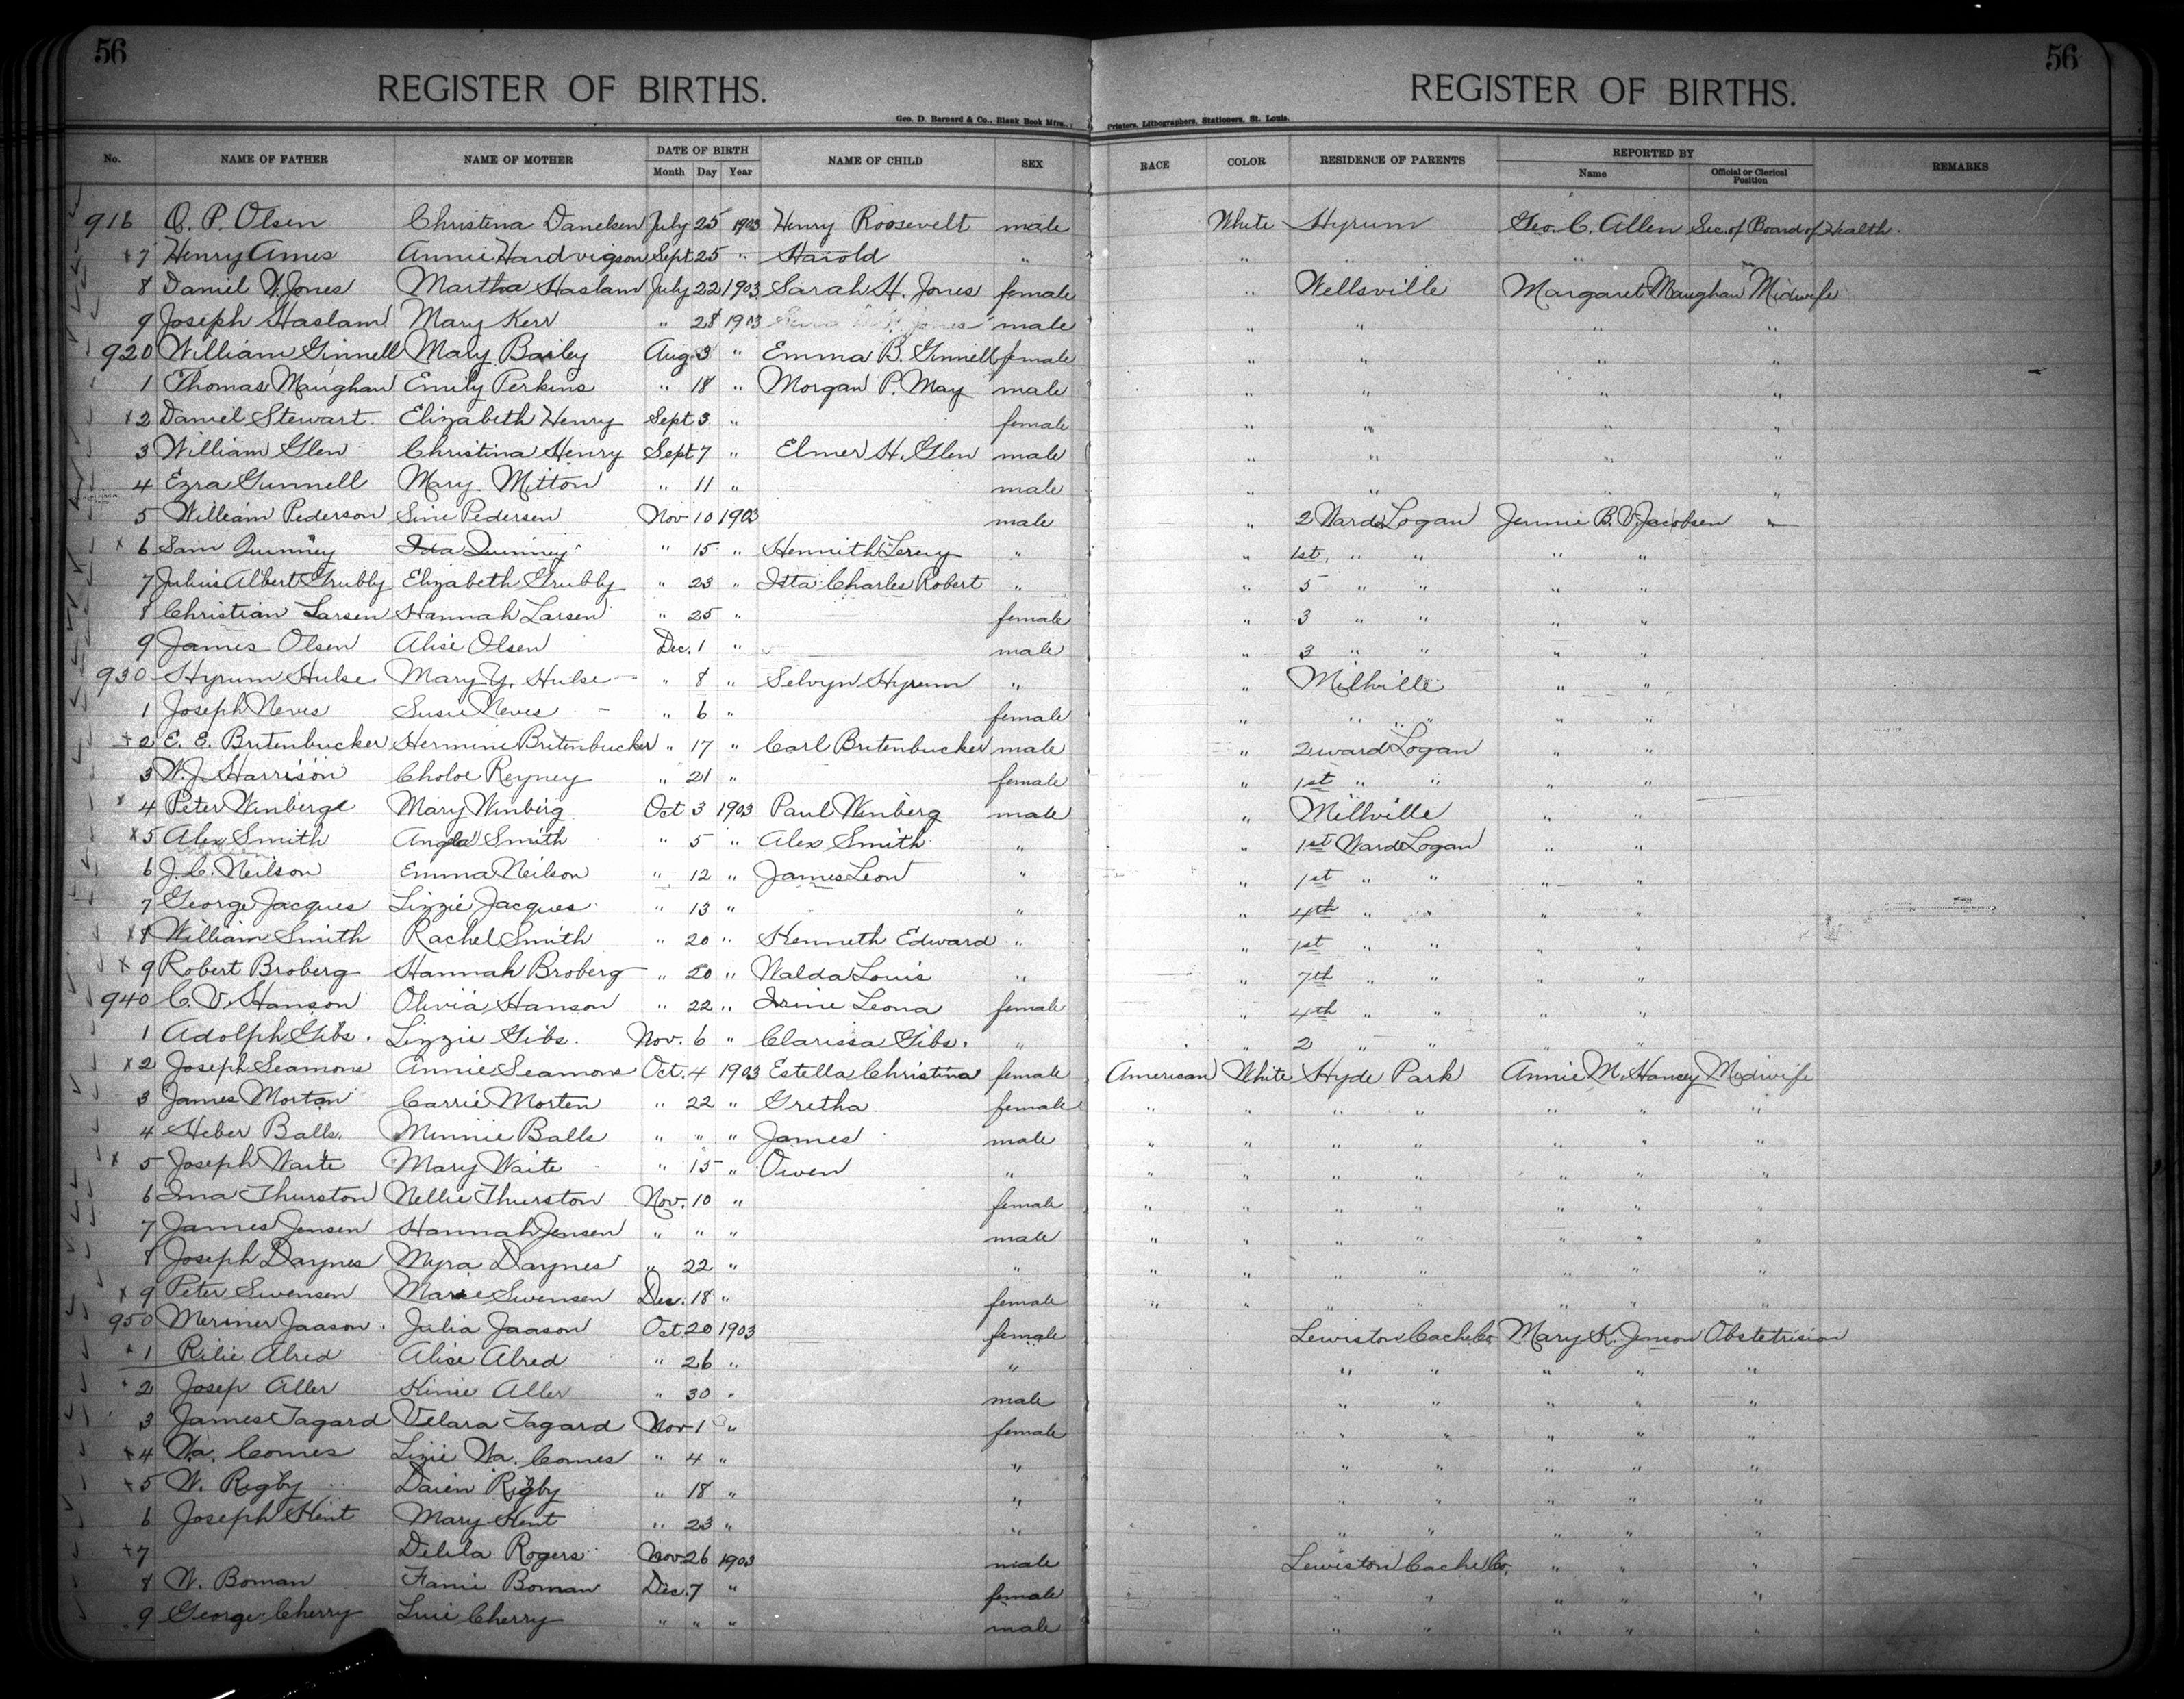 56
56
REGISTER OF BIRTHS.
REGISTER OF BIRTHS.
Geo. D. Barnard & Co., Blank Book Mfrs.,
Printers, Lithographers, Stationers, St. Louis.
No. NAME OF FATHER NAME OF MOTHER DATE OF BIRTH NAME OF CHILD SEX RACE COLOR RESIDENCE OF PARENTS REPORTED BY REMARKS
Month Day Year Name Official or Clerical Position
916 O. P. Olsen Christina Danelsen July 25 1903 Henry Roosevelt male White Hyrum Geo. C. Allen Sec. of Board of Health.
x 7 Henry Ames Annie Hardvigson Sept 25 " Harold " " " " "
8 Daniel W. Jones Martha Haslam July 22 1903 Sarah H. Jones female " Wellsville Margaret Maughan Midwife
9 Joseph Haslam Mary Kerr " 28 1903 male " " " "
920 William Ginnell Mary Bailey Aug. 3 " Emma B. Ginnell female " " " "
1 Thomas Maughan Emily Perkins " 18 " Morgan P. May male " " " "
x 2 Daniel Stewart. Elizabeth Henry Sept 3 " female " " " "
3 William Glen Christina Henry Sept 7 " Elmer H. Glen male " " " "
4 Ezra Gunnell Mary Mitton " 11 " male " " " "
5 William Pederson Sine Pedersen Nov 10 1903 male " 2 Ward Logan Jennie B. V. Jacobsen "
x 6 Sam Quinney Ida Quinney " 15 " " " 1st " " " "
7 Julius Albert Grubby Elizabeth Grubby " 23 " Itta Charles Robert " " 5 " " " "
8 Christian Larsen Hannah Larsen " 25 " female " 3 " " " "
9 James Olsen Alise Olsen Dec. 1 " male " 3 " " " "
930 Hyrum Hulse Mary Y. Hulse " 8 " Selvyn Hyrum " " Millville " "
1 Joseph Neves Susie Neves " 6 " female " " " " "
x 2 E. E. Britenbucker Hermine Britenbucker " 17 " Carl Britenbucker male " 2 ward Logan " "
3 W. J. Harrison Choloe Reyney " 21 " female " 1st " " " "
x 4 Peter Winberge Mary Winberg Oct 3 1903 Paul Winberg male " Millville " "
x 5 Alex Smith Smith " 5 " Alex Smith " " 1st Ward Logan " "
6 J. C. Neilson Emma Neilson " 12 " James Leon " " 1st " " " "
7 George Jacques Lizzie Jacques " 13 " " " 4th " " " "
x 8 William Smith Rachel Smith " 20 " Kenneth Edward " " 1st " " " "
x 9 Robert Broberg Hannah Broberg " 20 " Walda Louis " " 7th " " " "
940 C. V. Hanson Olivia Hanson " 22 " Irine Leona female " 4th " " " "
1 Adolph Gibs. Lizzie Gibs. Nov. 6 " Clarissa Gibs. " " 2 " " " "
x 2 Joseph Seamons Annie Seamons Oct. 4 1903 Estella Christina female American White Hyde Park Annie M. Hancey Midwife
3 James Morton Carrie Morten " 22 " Gretha female " " " " " " "
4 Heber Balls. Minnie Balls " " " James male " " " " " " "
x 5 Joseph Waite Mary Waite " 15 " Owen " " " " " " " "
6 Ima Thurston Nellie Thurston Nov. 10 " female " " " " " " "
7 James Jensen Hannah Jensen " " " male " " " " " " "
8 Joseph Daynes Myra Daynes " 22 " " " " " " " " "
x 9 Peter Swensen Marie Swensen Dec. 18 " female " " " " " " "
950 Meriner Jaason. Julia Jaason Oct. 20 1903 female Lewiston Cache Co Mary K. Jenson Obstetrision
x 1 Rilie Alred Alise Alred " 26 " " " " " " "
x 2 Josep Aller Kinie Aller " 30 " male " " " " "
3 James Tagard Velara Tagard Nov 1 " female " " " " "
x 4 Wa. Comes Lizie Wa. Comes " 4 " " " " " " "
x 5 W. Rigby Rigby " 18 " " " " " " "
6 Joseph Kent Mary Kent " 23 " " " " " " "
x 7 Delila Rogers Nov 26 1903 male Lewiston Cache Co, " " "
8 W. Boman Fanie Boman Dec. 7 " female " " " " "
9 George Cherry Cherry " " " male " " " " "